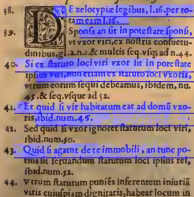 38. DE zelotypiæ legibus, l.16. per totam
eam l.16.
39. Sponsa an sit in potestate sponsi,
vt vxor viri, ex nostris consuetudinibus
gl.2.n.1. & multis seq. vsq; ad n.44.
40. Si ex statuto loci viri vxor sit in potestate
ipsius viri, non etiam ex statuto loci vxoris,
vtrum eorum sequi debeamus, ibidem, nu.
45. & seq. vsque ad 52.
41. Et quid si vir habitaturus eat ad domū vxoris,
ibid. num. 45.
42. Sed quid si vxor ignoret statutum loci viri,
ibid. num. 50.
43. Quid si agant de re immobili, an tunc potius
sit seruandum statutum loci ipsius rei,
ibid. num. 52.
44. Vtrum statutum puniēs inferentem iniuriā